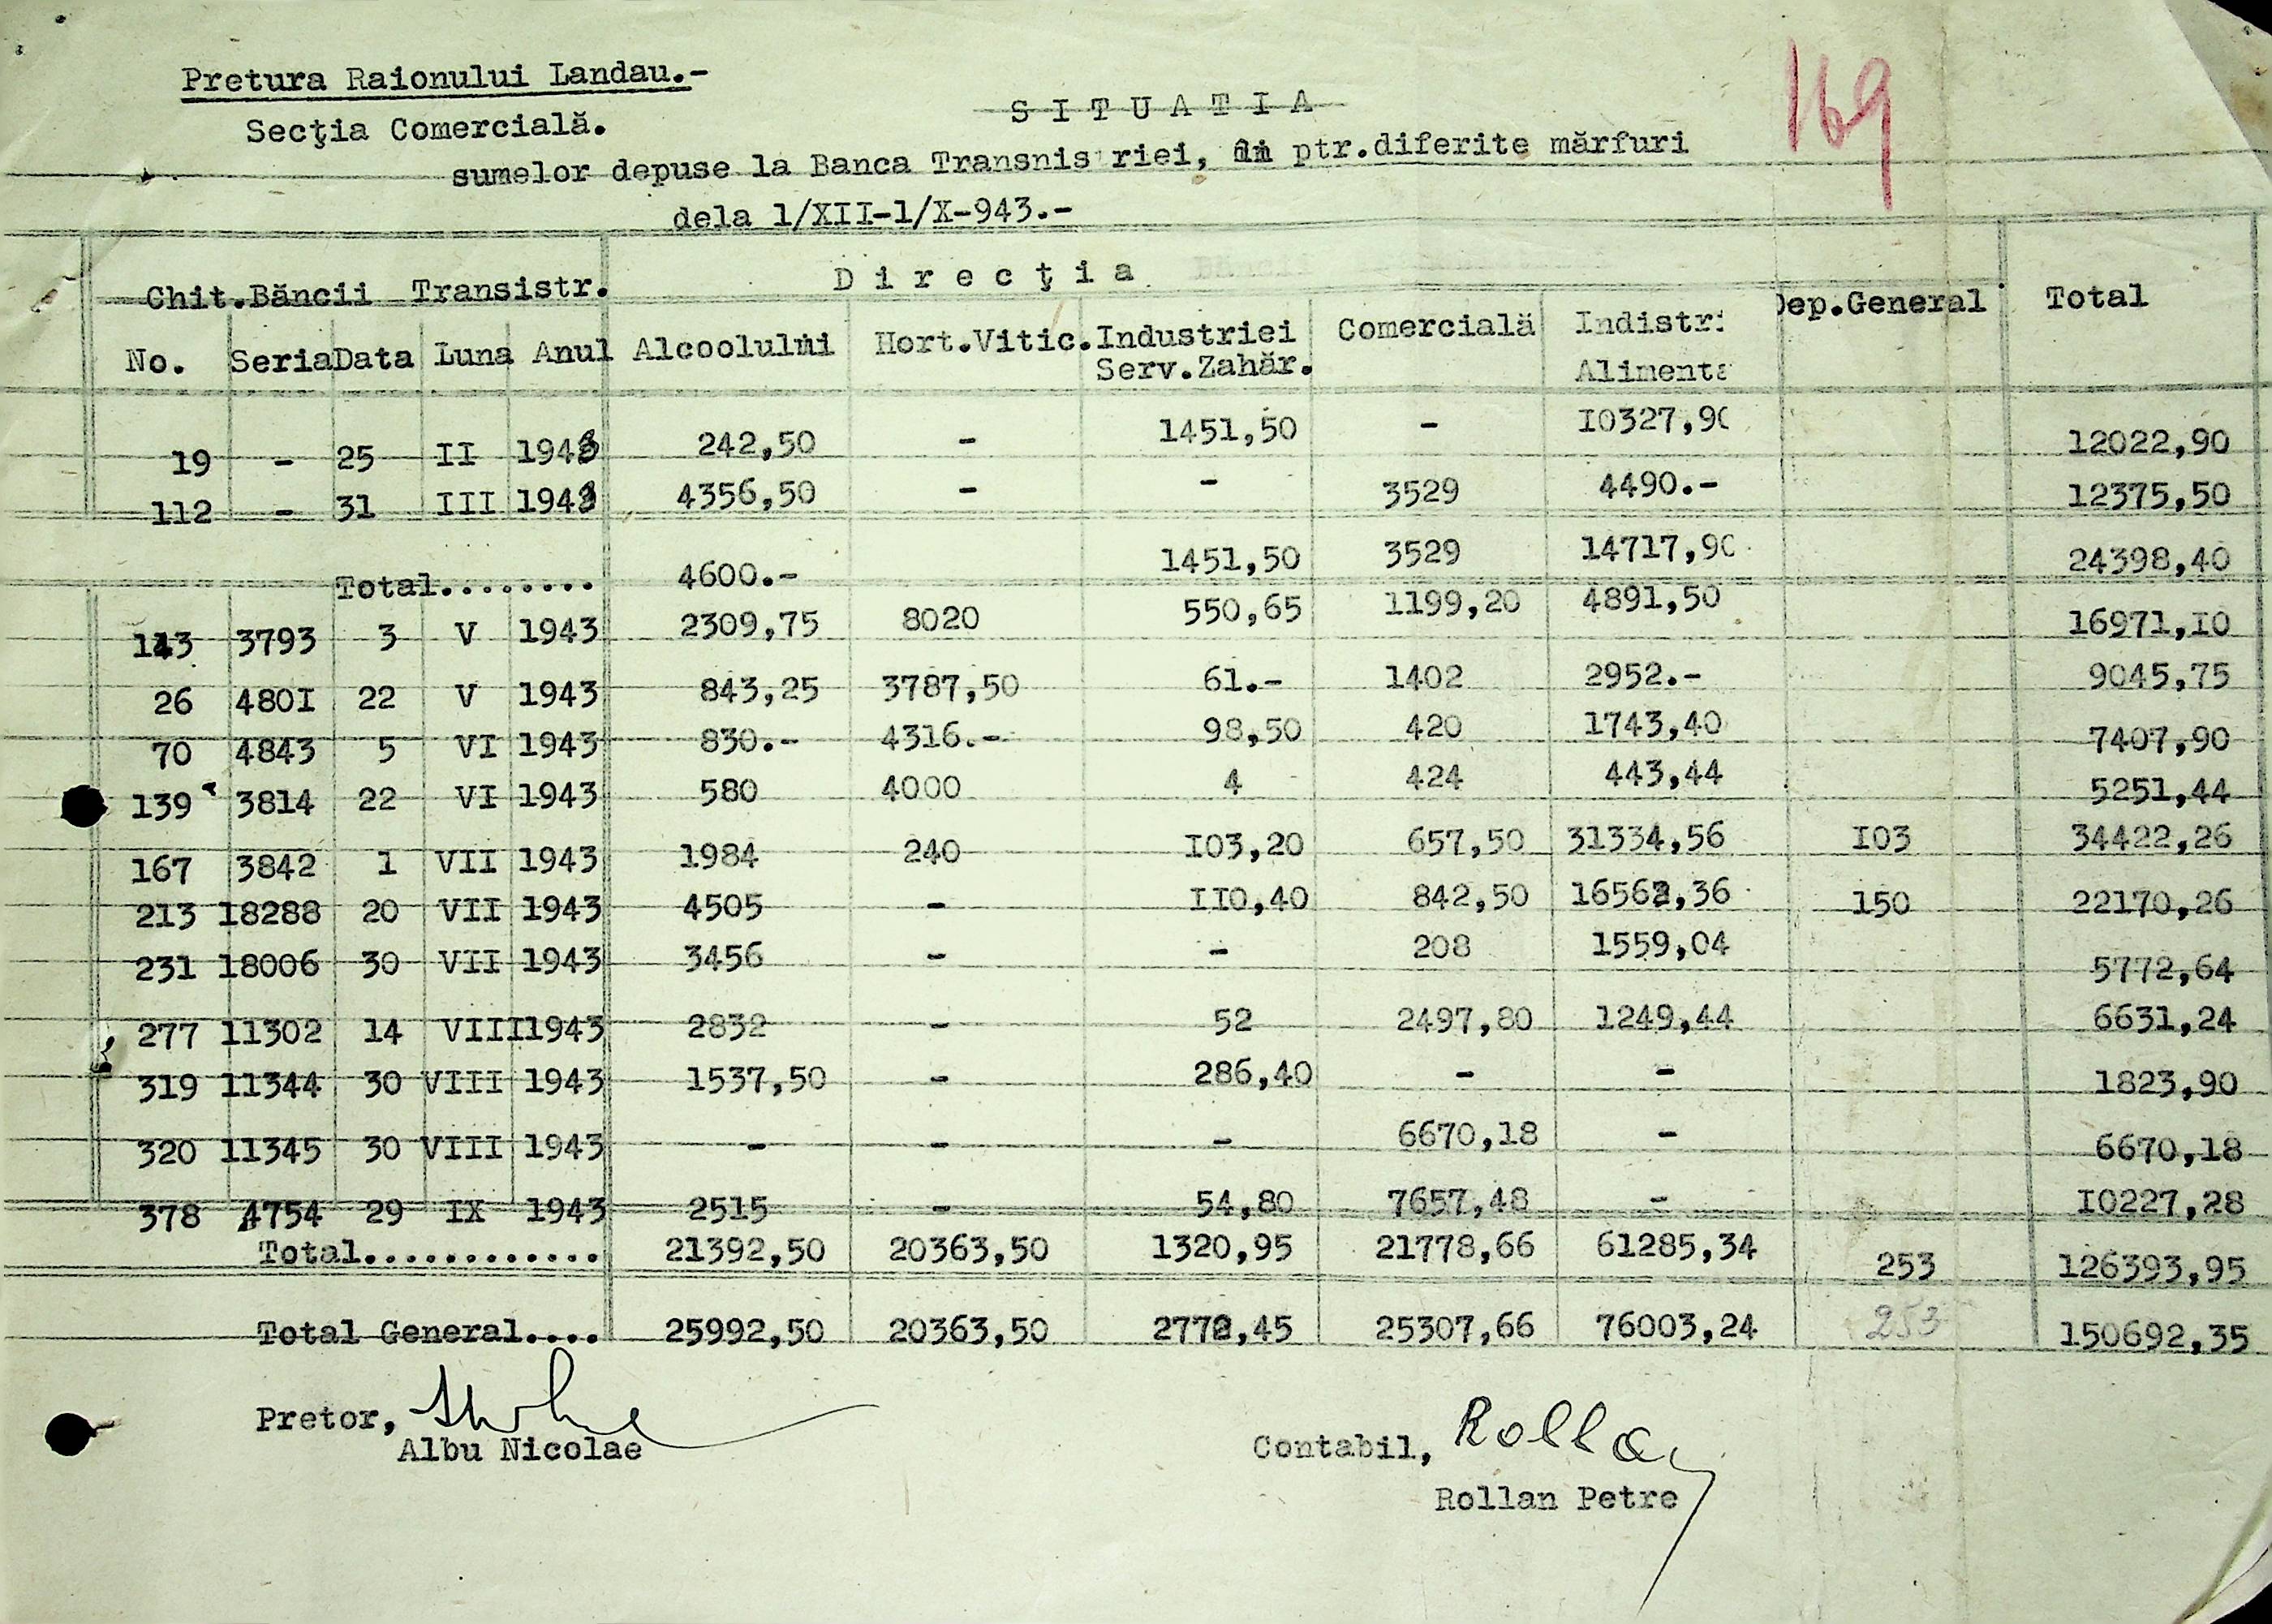 169
Pretura Raionului Landau.-
Secţia Comercială.
S I T U A T I A
sumelor depuse la Banca Transnis riei, ptr.diferite mărfuri
dela 1/XII-1/X-943.-
Chit.Băncii Transistr. D i r e c ţ i a Dep.General Total
No. Seria Data Luna Anul Alcoolului Hort.Vitic. Industriei Serv.Zahăr. Comercială Indistri Alimenta
19 - 25 II 1943 242,50 - 1451,50 - I0327,90 12022,90
112 - 31 III 1943 4356,50 - - 3529 4490.- 12375,50
Total........ 4600.- 1451,50 3529 14717,90 24398,40
143 3793 3 V 1943 2309,75 8020 550,65 1199,20 4891,50 16971,I0
26 480I 22 V 1943 843,25 3787,50 61.- 1402 2952.- 9045,75
70 4843 5 VI 1943 830.- 4316.- 98,50 420 1743,40 7407,90
139 3814 22 VI 1943 580 4000 4 424 443,44 5251,44
167 3842 1 VII 1943 1984 240 I03,20 657,50 31334,56 I03 34422,26
213 18288 20 VII 1943 4505 - II0,40 842,50 16562,36 150 22170,26
231 18006 30 VII 1943 3456 - - 208 1559,04 5772,64
277 11302 14 VIII 1943 2832 - 52 2497,80 1249,44 6631,24
319 11344 30 VIII 1943 1537,50 - 286,40 - - 1823,90
320 11345 30 VIII 1943 - - - 6670,18 - 6670,18
378 4754 29 IX 1943 2515 - 54,80 7657,48 - I0227,28
Total............ 21392,50 20363,50 1320,95 21778,66 61285,34 253 126393,95
Total General.... 25992,50 20363,50 2772,45 25307,66 76003,24 253 150692,35
Pretor,
Albu Nicolae
Contabil, Rollan
Rollan Petre